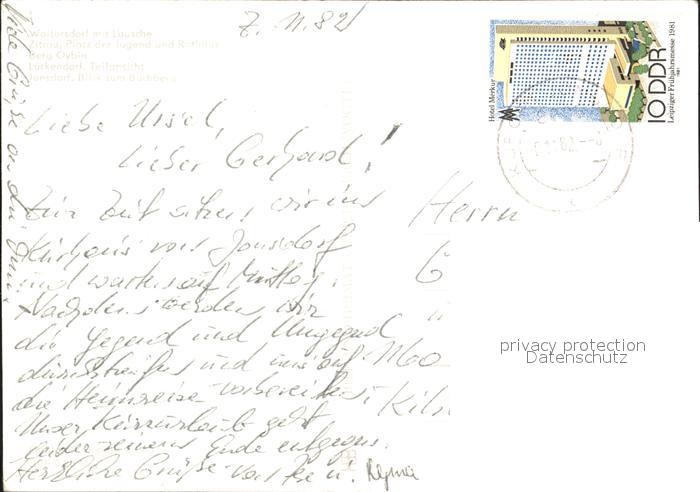 7. 11. 82
Waltersdorf mit Lausche
Zittau, Platz der Jugend und Rathaus
Berg Oybin
Lückendorf, Teilansicht
Jonsdorf, Blick zum Buchberg
Hotel Merkur
10 DDR
Leipziger Frühjahrsmesse 1981
Liebe Ursel,
lieber Gerhard!
Zur Zeit sitzen wir im
Kurhaus von Jonsdorf
und warten auf Mittag.
Nachdem werden wir
die Gegend und Umgegend
durchstreifen und uns auf
die Heimreise vorbereiten.
Unser Kurzurlaub geht
leider seinem Ende entgegen.
Herzliche Grüße von u. Regina
Liebe Grüße an die
Herrn
G
privacy protection
Datenschutz